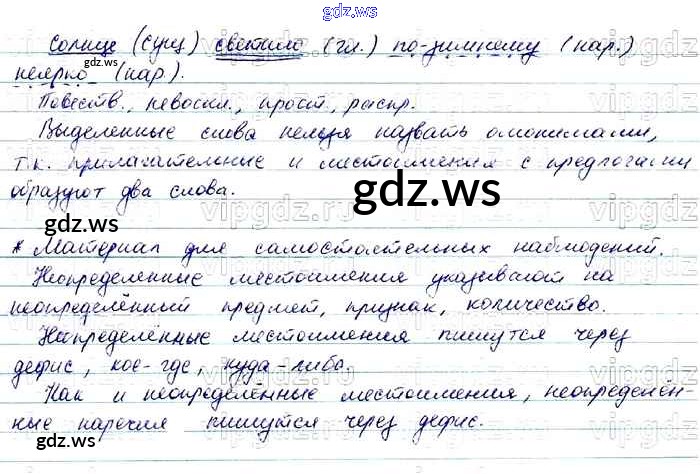 gdz.ws
солнце (сущ) светило (гл.) по-зимнему (нар.)
неярко (нар.).
gdz.ws
Повеств., невоскл., прост., распр.
Выделенные слова нельзя назвать омонимами,
т.к. прилагательные и местоимения с предлогами
образуют два слова.
gdz.ws
gdz.ws
* Материал для самостоятельных наблюдений.
Неопределенные местоимения указывают на
неопределённый предмет, признак, количество.
Неопределённые местоимения пишутся через
дефис, кое-где, куда-либо.
Как и неопределённые местоимения, неопределён-
ные наречия пишутся через дефис.
gdz.ws